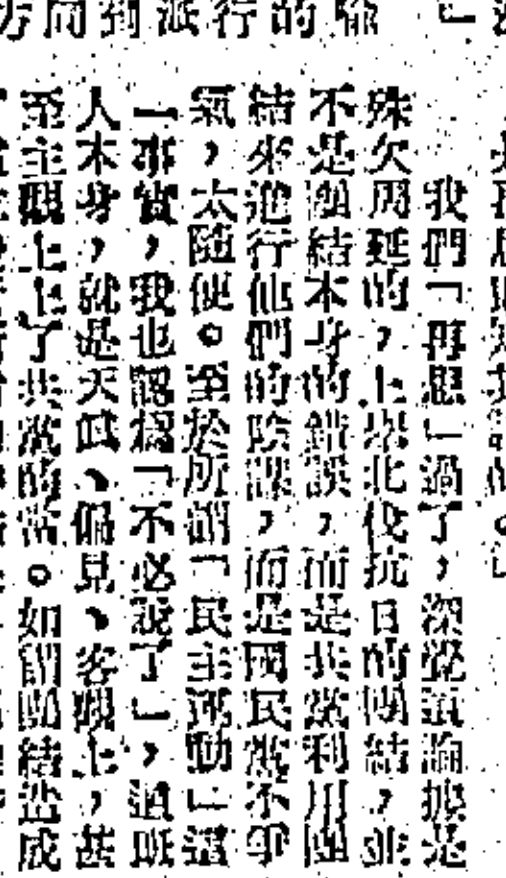 我們「再思」過了,深覺這論據是
殊欠周延的,上舉北伐抗日的團結,並
不是團結本身的錯誤,而是共黨利用團
結來進行他們的陰謀,而是國民黨不爭
氣,太隨便。至於所謂「民主運動」這
一事實,我也認爲「不必說了」,這既
人本身,就是天眞、偏見、客觀上,甚
至主觀上上了共黨的當。如謂團結造成